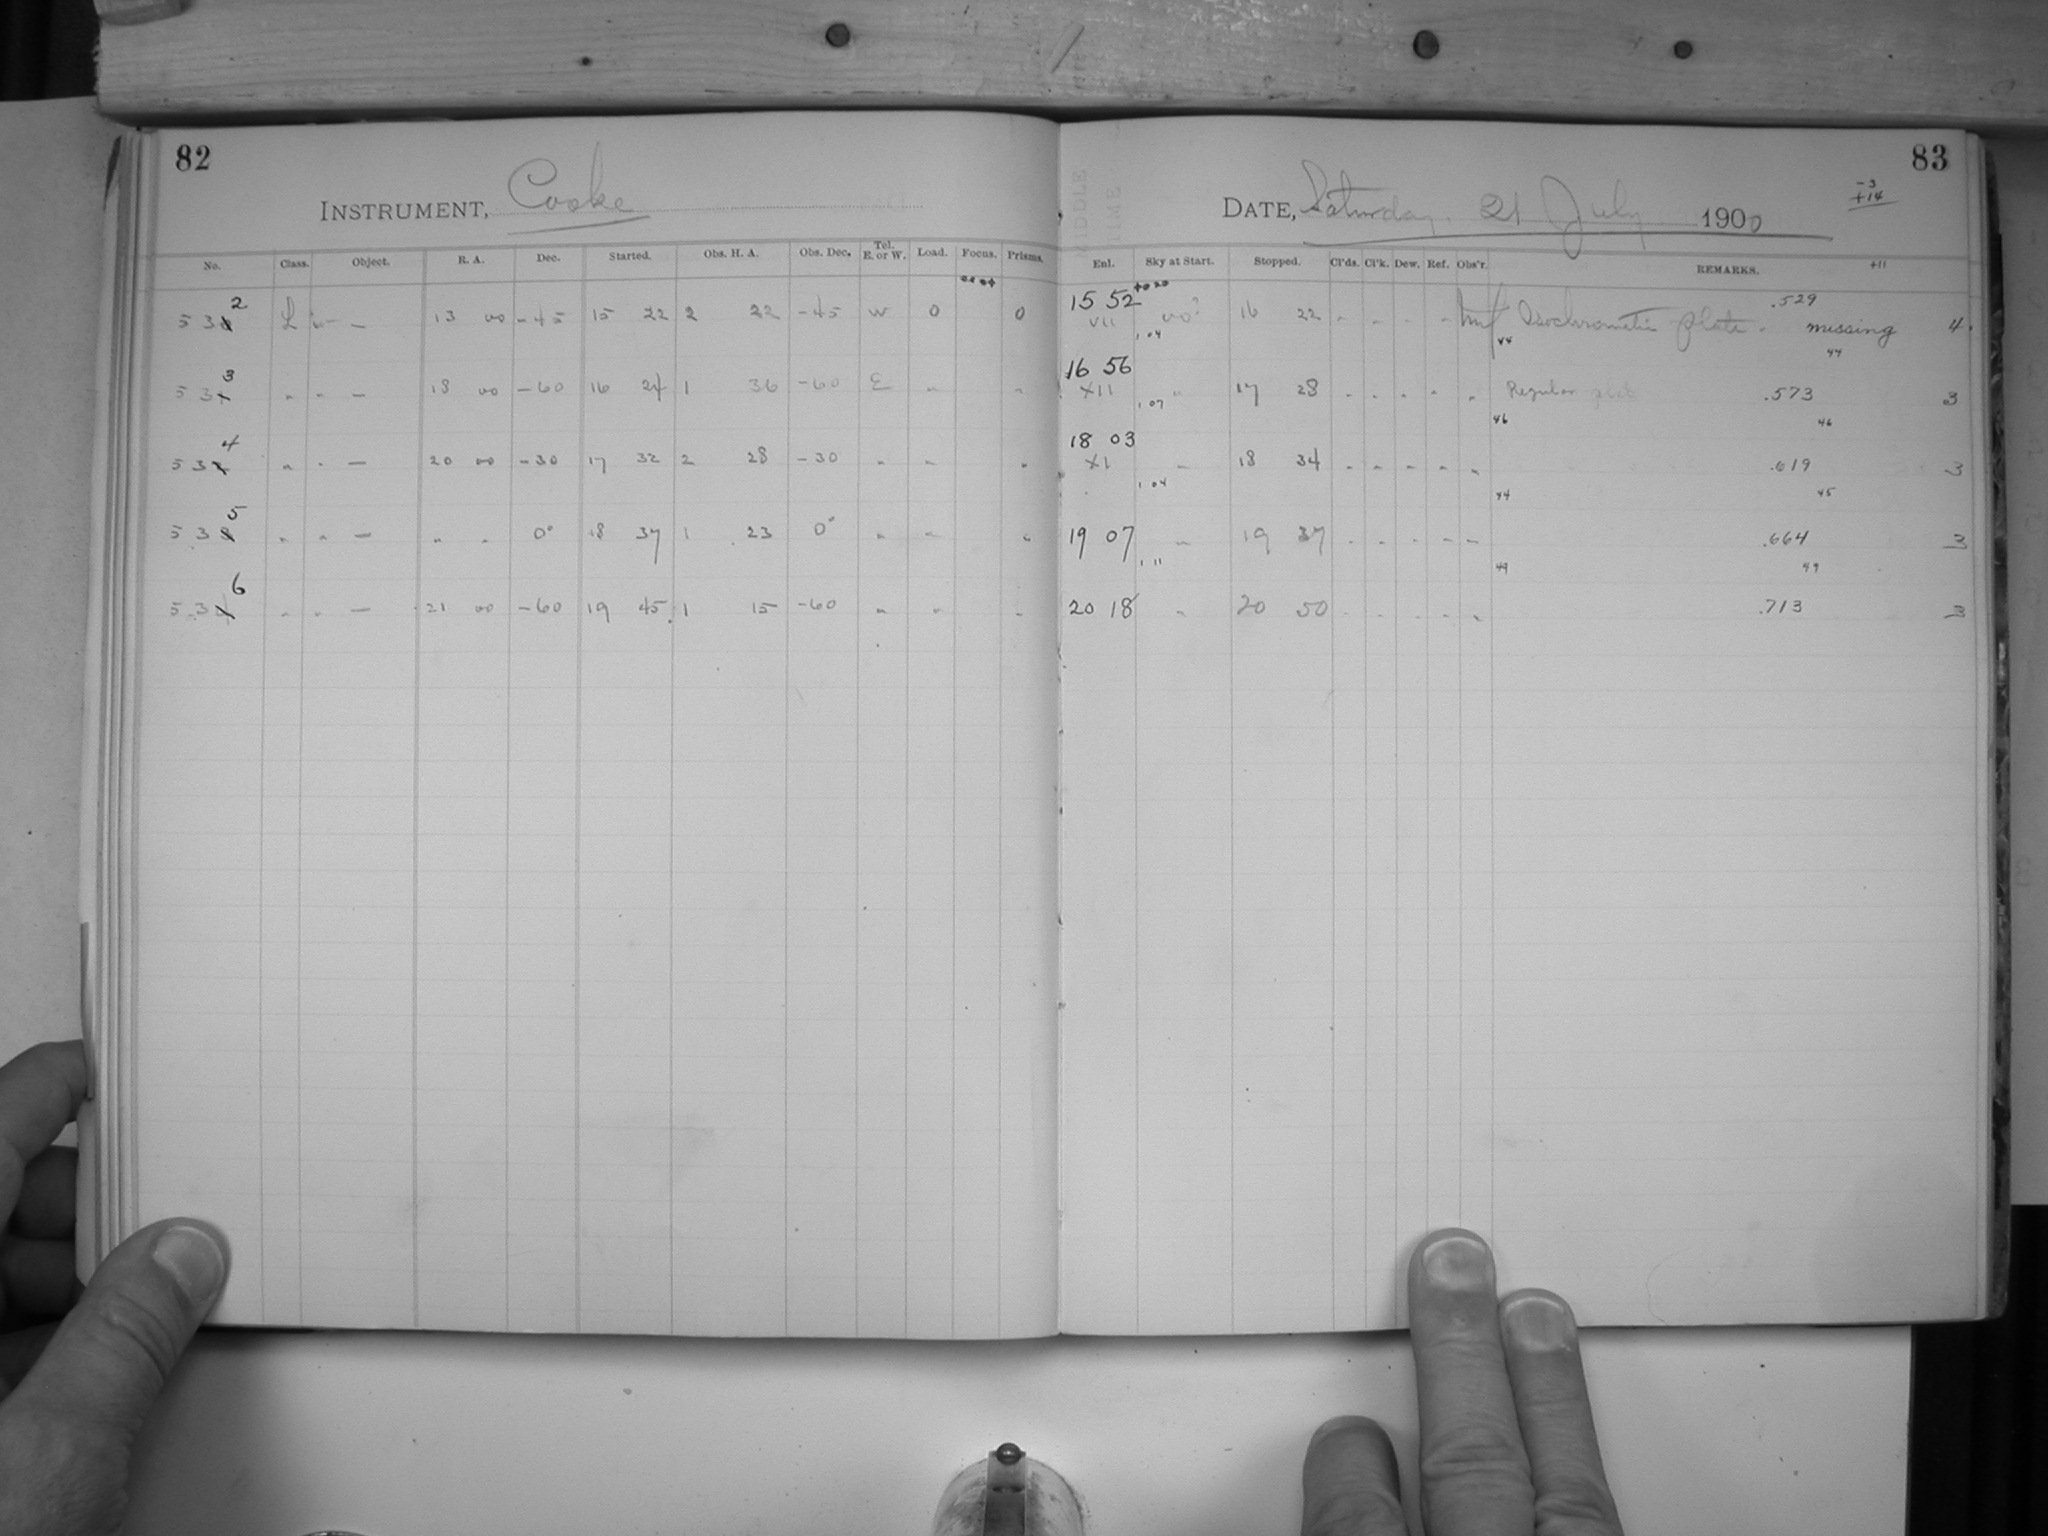 82
INSTRUMENT, Cooke
No. Class. Object. R. A. Dec. Started. Obs. H. A. Obs. Dec. Tel. E. or W. Load. Focus. Prisms.
532 L — 13 00 -45 15 22 2 22 -45 W 0 0
533 " " — 18 00 -60 16 24 1 36 -60 E " "
534 " " — 20 00 -30 17 32 2 28 -30 " " "
535 " " — " " 0° 18 37 1 23 0° " " "
536 " " — 21 00 -60 19 45 1 15 -60 " " "
83
DATE, Saturday. 21 July 1900
-3
+14
MIDDLE TIME
Enl. Sky at Start. Stopped. Cl'ds. Cl'k. Dew. Ref. Obs'r. REMARKS. +11
15 52 16 22 - - - - Isochromatic plate. .529 missing 4
VII
1 04 44 44
16 56 " 17 28 - - - - " Regular .573 3
XII
1 07 46 46
18 03 " 18 34 - - - - " .619 3
XI
1 04 44 45
19 07 " 19 37 - - - - - .664 3
1 11 49 49
20 18 " 20 50 - - - - " .713 3